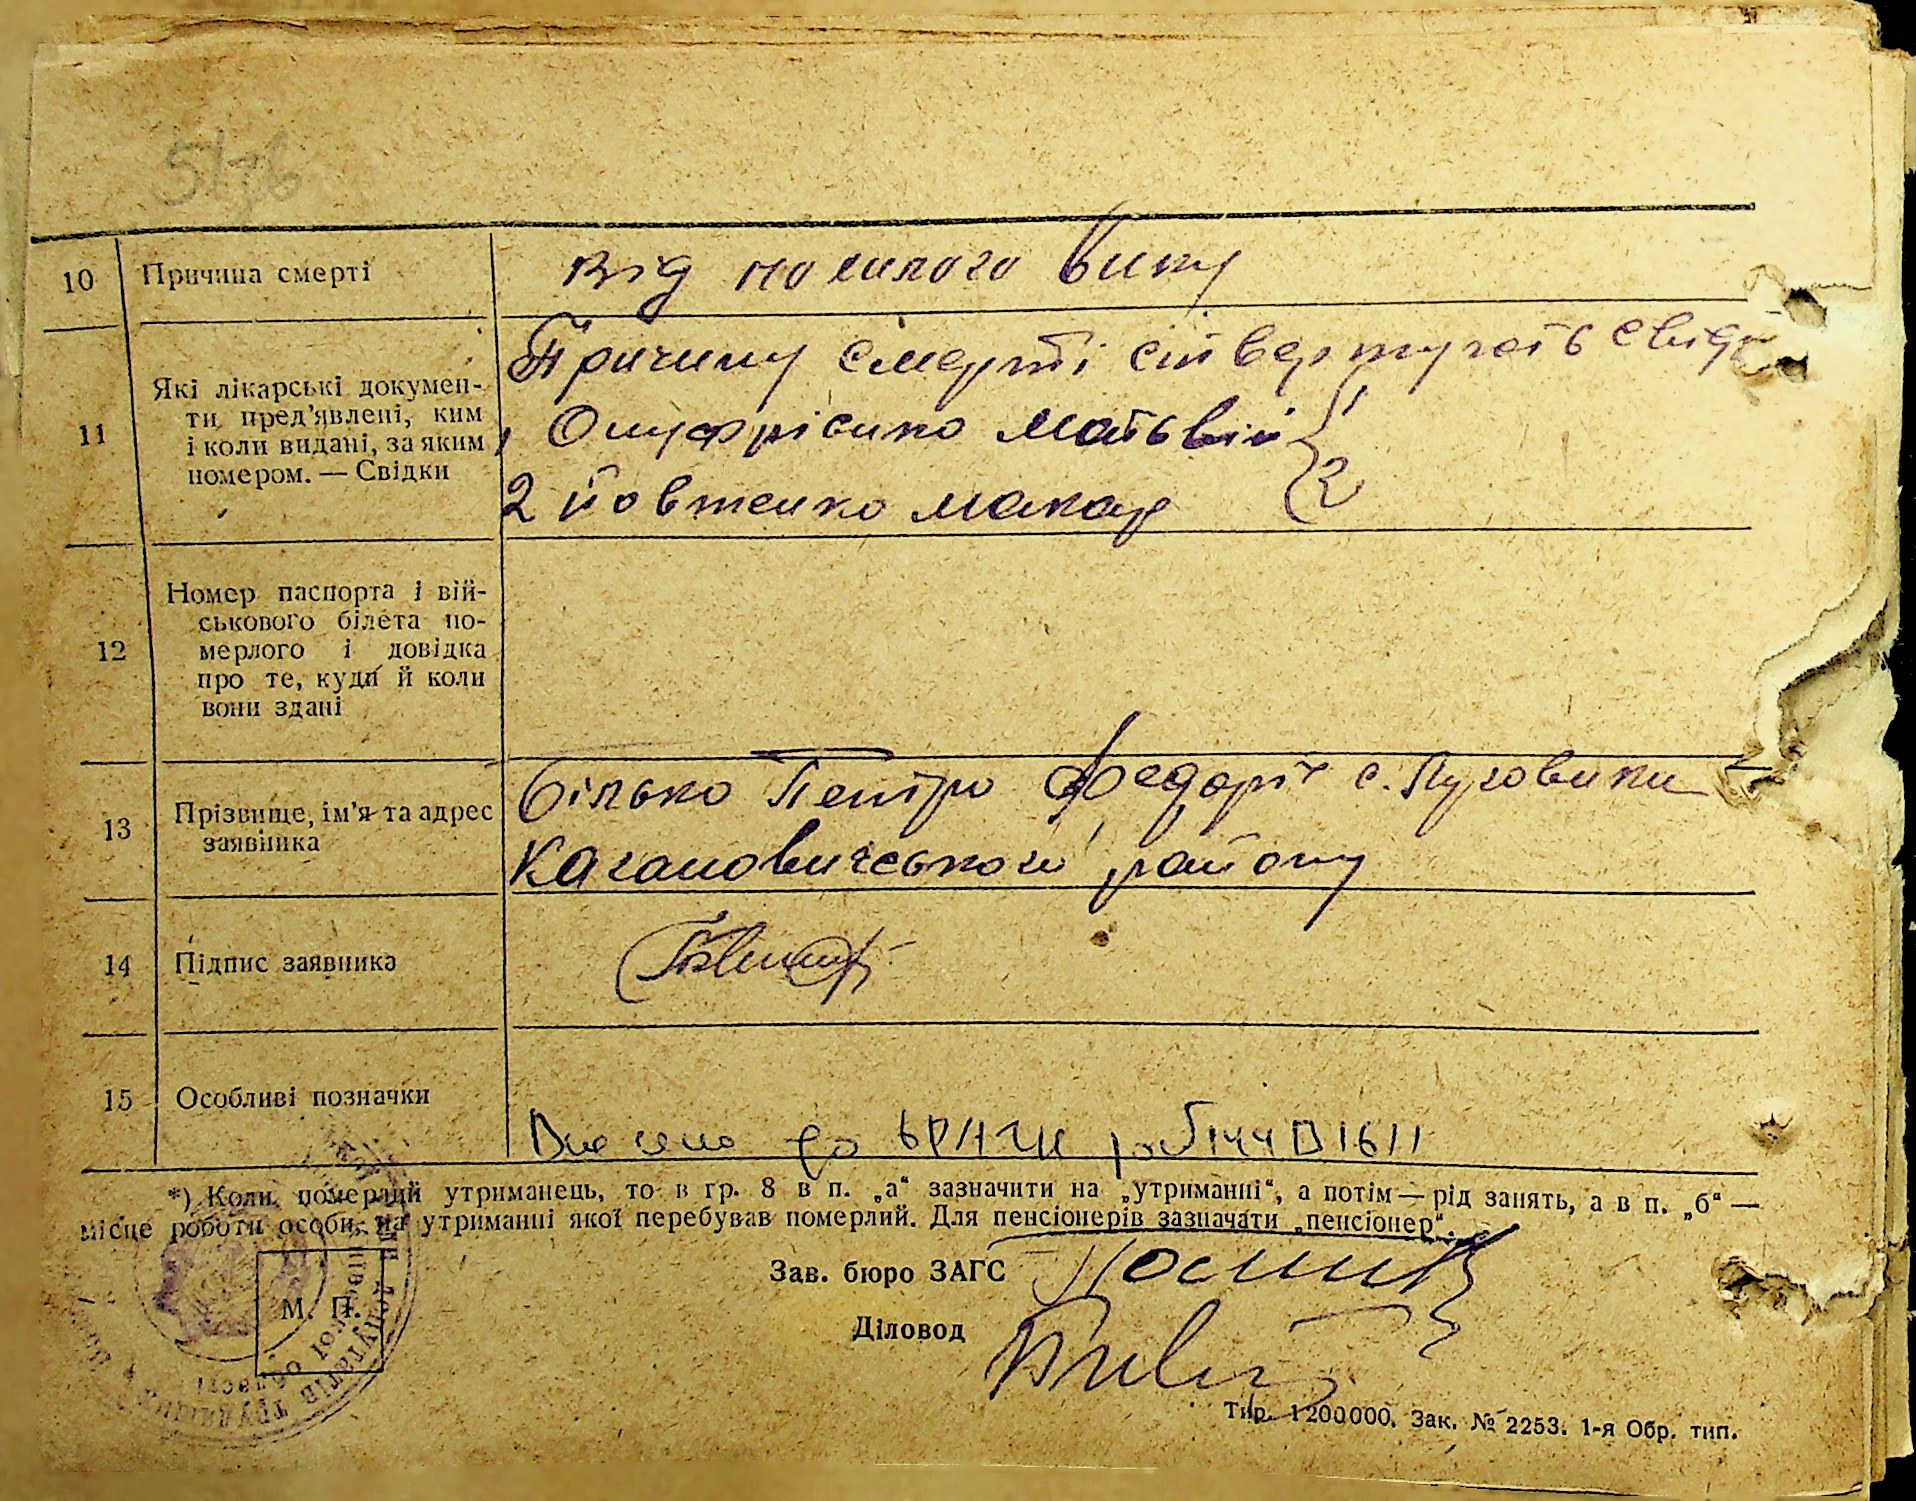 10 Причина смерті від похилого вику
11 Які лікарські докумен-
ти пред’явлені, ким
і коли видані, за яким
номером. — Свідки
Причину смерті ствержують свідки
1 Онуфрієнко Матьвій
2 Йовженко Макар
12 Номер паспорта і вій-
ськового білета по-
мерлого і довідка
про те, куди й коли
вони здані
13 Прізвище, ім’я та адрес
заявника
Білько Петро Федоріч с. Луговики
Кагановичського району
14 Підпис заявника
15 Особливі позначки
Внесено до
*) Коли померлий утриманець, то в гр. 8 в п. „а“ зазначити на „утриманні“, а потім — рід занять, а в п. „б“ —
місце роботи особи, на утриманні якої перебував померлий. Для пенсіонерів зазначати „пенсіонер“.
Зав. бюро ЗАГС
М. П.
Діловод
Тир. 1200000. Зак. № 2253. 1-я Обр. тип.